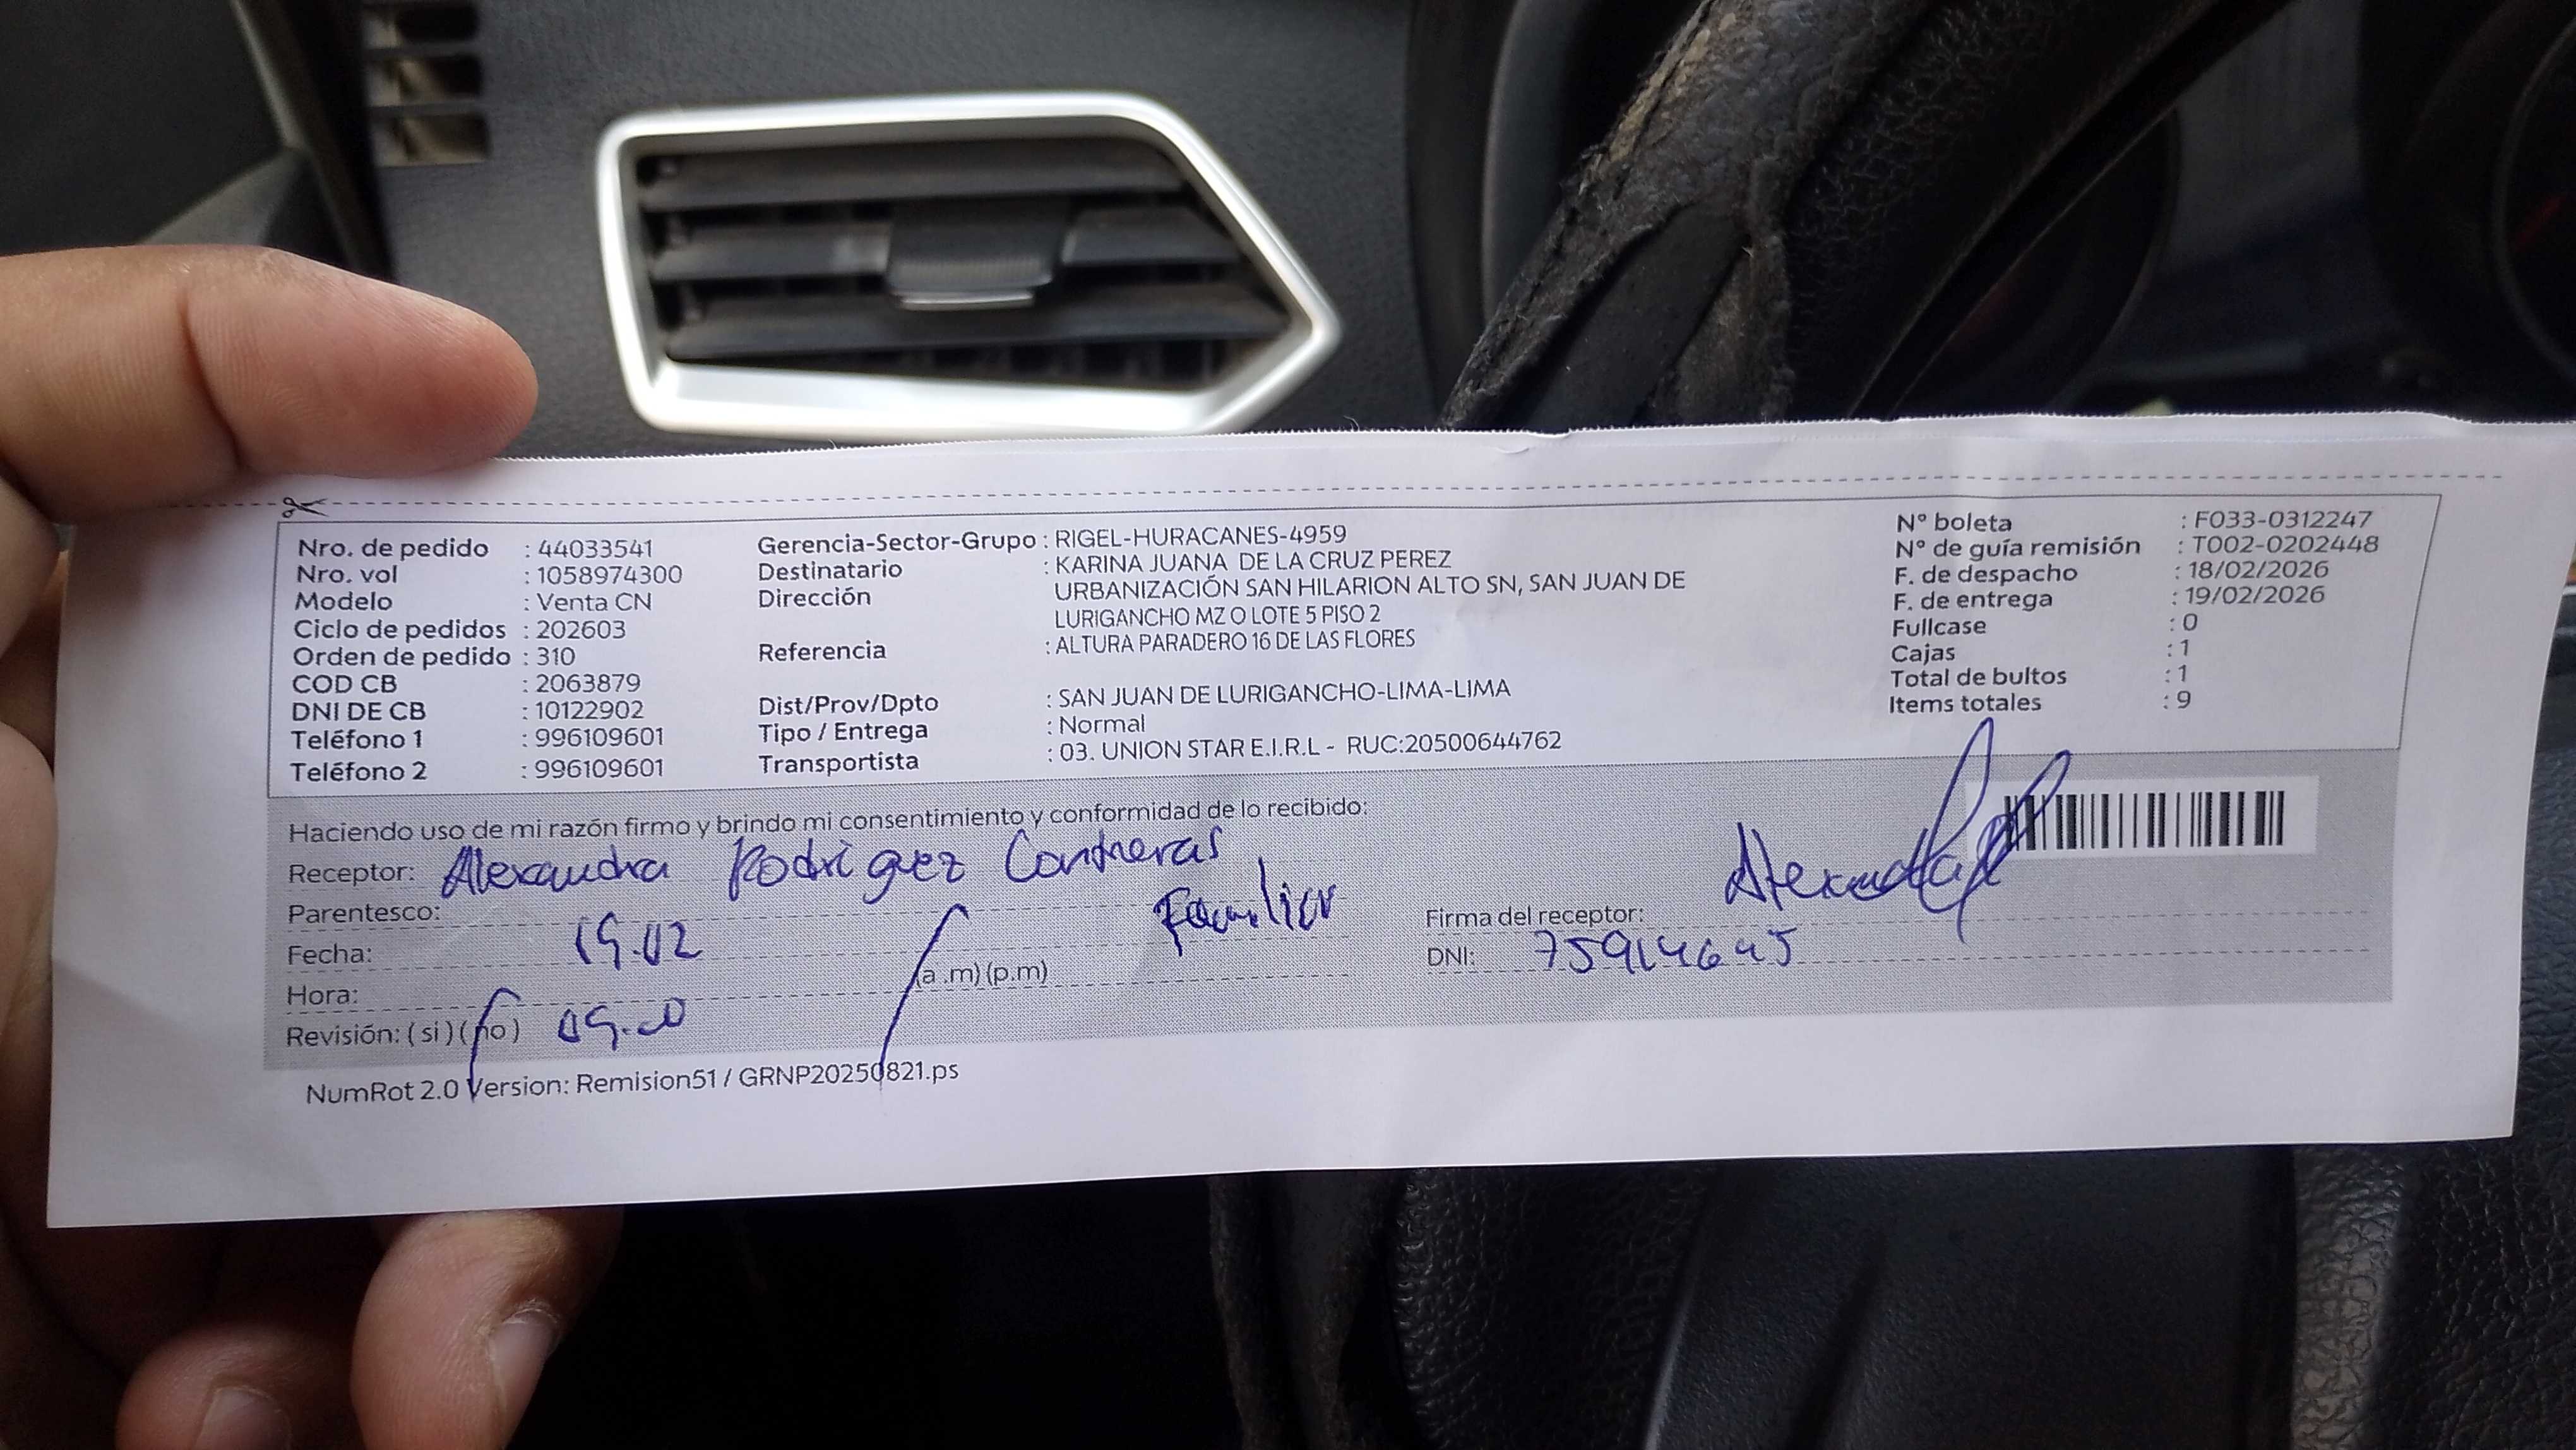 Nro. de pedido : 44033541
Nro. vol : 1058974300
Modelo : Venta CN
Ciclo de pedidos : 202603
Orden de pedido : 310
COD CB : 2063879
DNI DE CB : 10122902
Teléfono 1 : 996109601
Teléfono 2 : 996109601
Gerencia-Sector-Grupo : RIGEL-HURACANES-4959
Destinatario : KARINA JUANA DE LA CRUZ PEREZ
Dirección URBANIZACIÓN SAN HILARION ALTO SN, SAN JUAN DE
LURIGANCHO MZ O LOTE 5 PISO 2
Referencia : ALTURA PARADERO 16 DE LAS FLORES
Dist/Prov/Dpto : SAN JUAN DE LURIGANCHO-LIMA-LIMA
Tipo / Entrega : Normal
Transportista : 03. UNION STAR E.I.R.L - RUC:20500644762
N° boleta : F033-0312247
N° de guía remisión : T002-0202448
F. de despacho : 18/02/2026
F. de entrega : 19/02/2026
Fullcase : 0
Cajas : 1
Total de bultos : 1
Items totales : 9
Haciendo uso de mi razón firmo y brindo mi consentimiento y conformidad de lo recibido:
Receptor: Alexandra Rodriguez Contreras
Parentesco: Familiar
Fecha: 19.02
Hora: (a .m) (p.m)
Revisión: ( si ) ( no ) 09.20
Firma del receptor: Alexandra
DNI: 75914645
NumRot 2.0 Version: Remision51 / GRNP20250821.ps